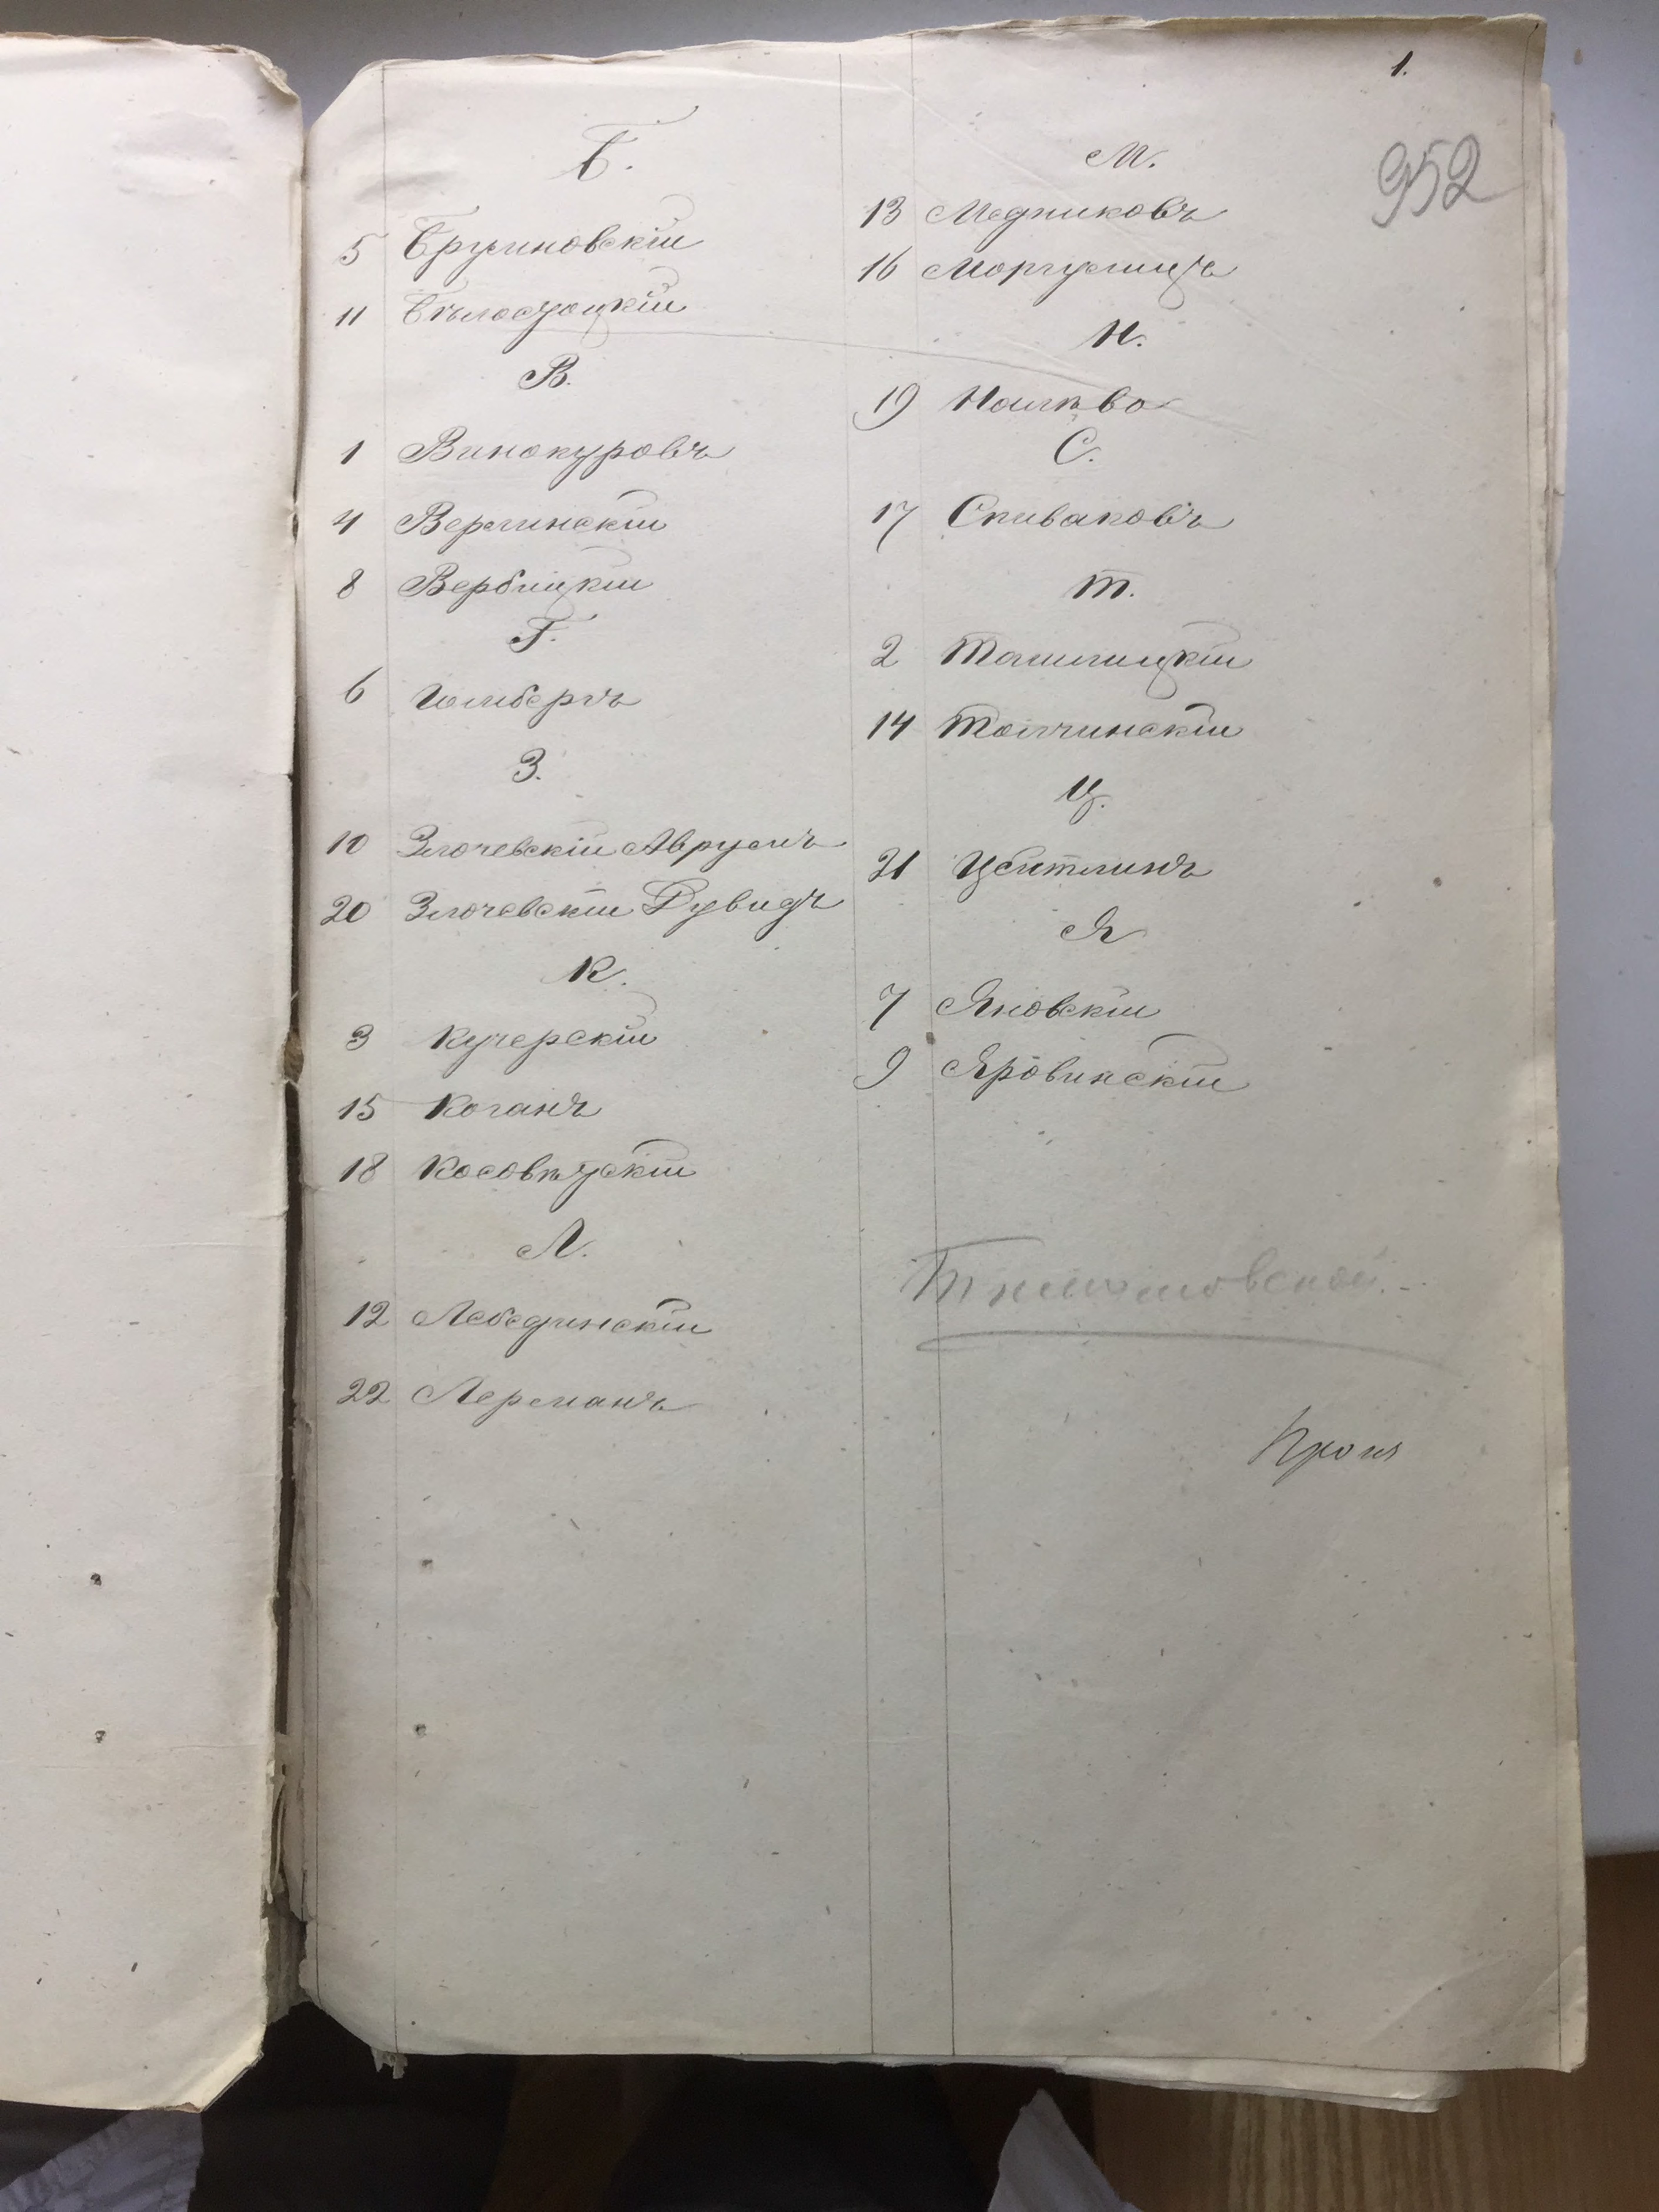 1.
952
Б.
5 Брусиновскій
11 Бѣлоцерковскій
В.
1 Винокуровъ
4 Верлинскій
8 Вербицкій
Г.
6 Гольбергъ
З.
10 Злочевскій Аврумъ
20 Злочевскій Дувидъ
К.
3 Кучерскій
15 Коганъ
18 Косовѣтскій
Л.
12 Лебединскій
22 Лерманъ
М.
13 Медниковъ
16 Моргулицъ
Н.
19 Наливо
С.
17 Спиваковъ
Т.
2 Ташлицкій
14 Толчинскій
Ц.
21 Цейтлинъ
Я
7 Яновскій
9 Яровинскій